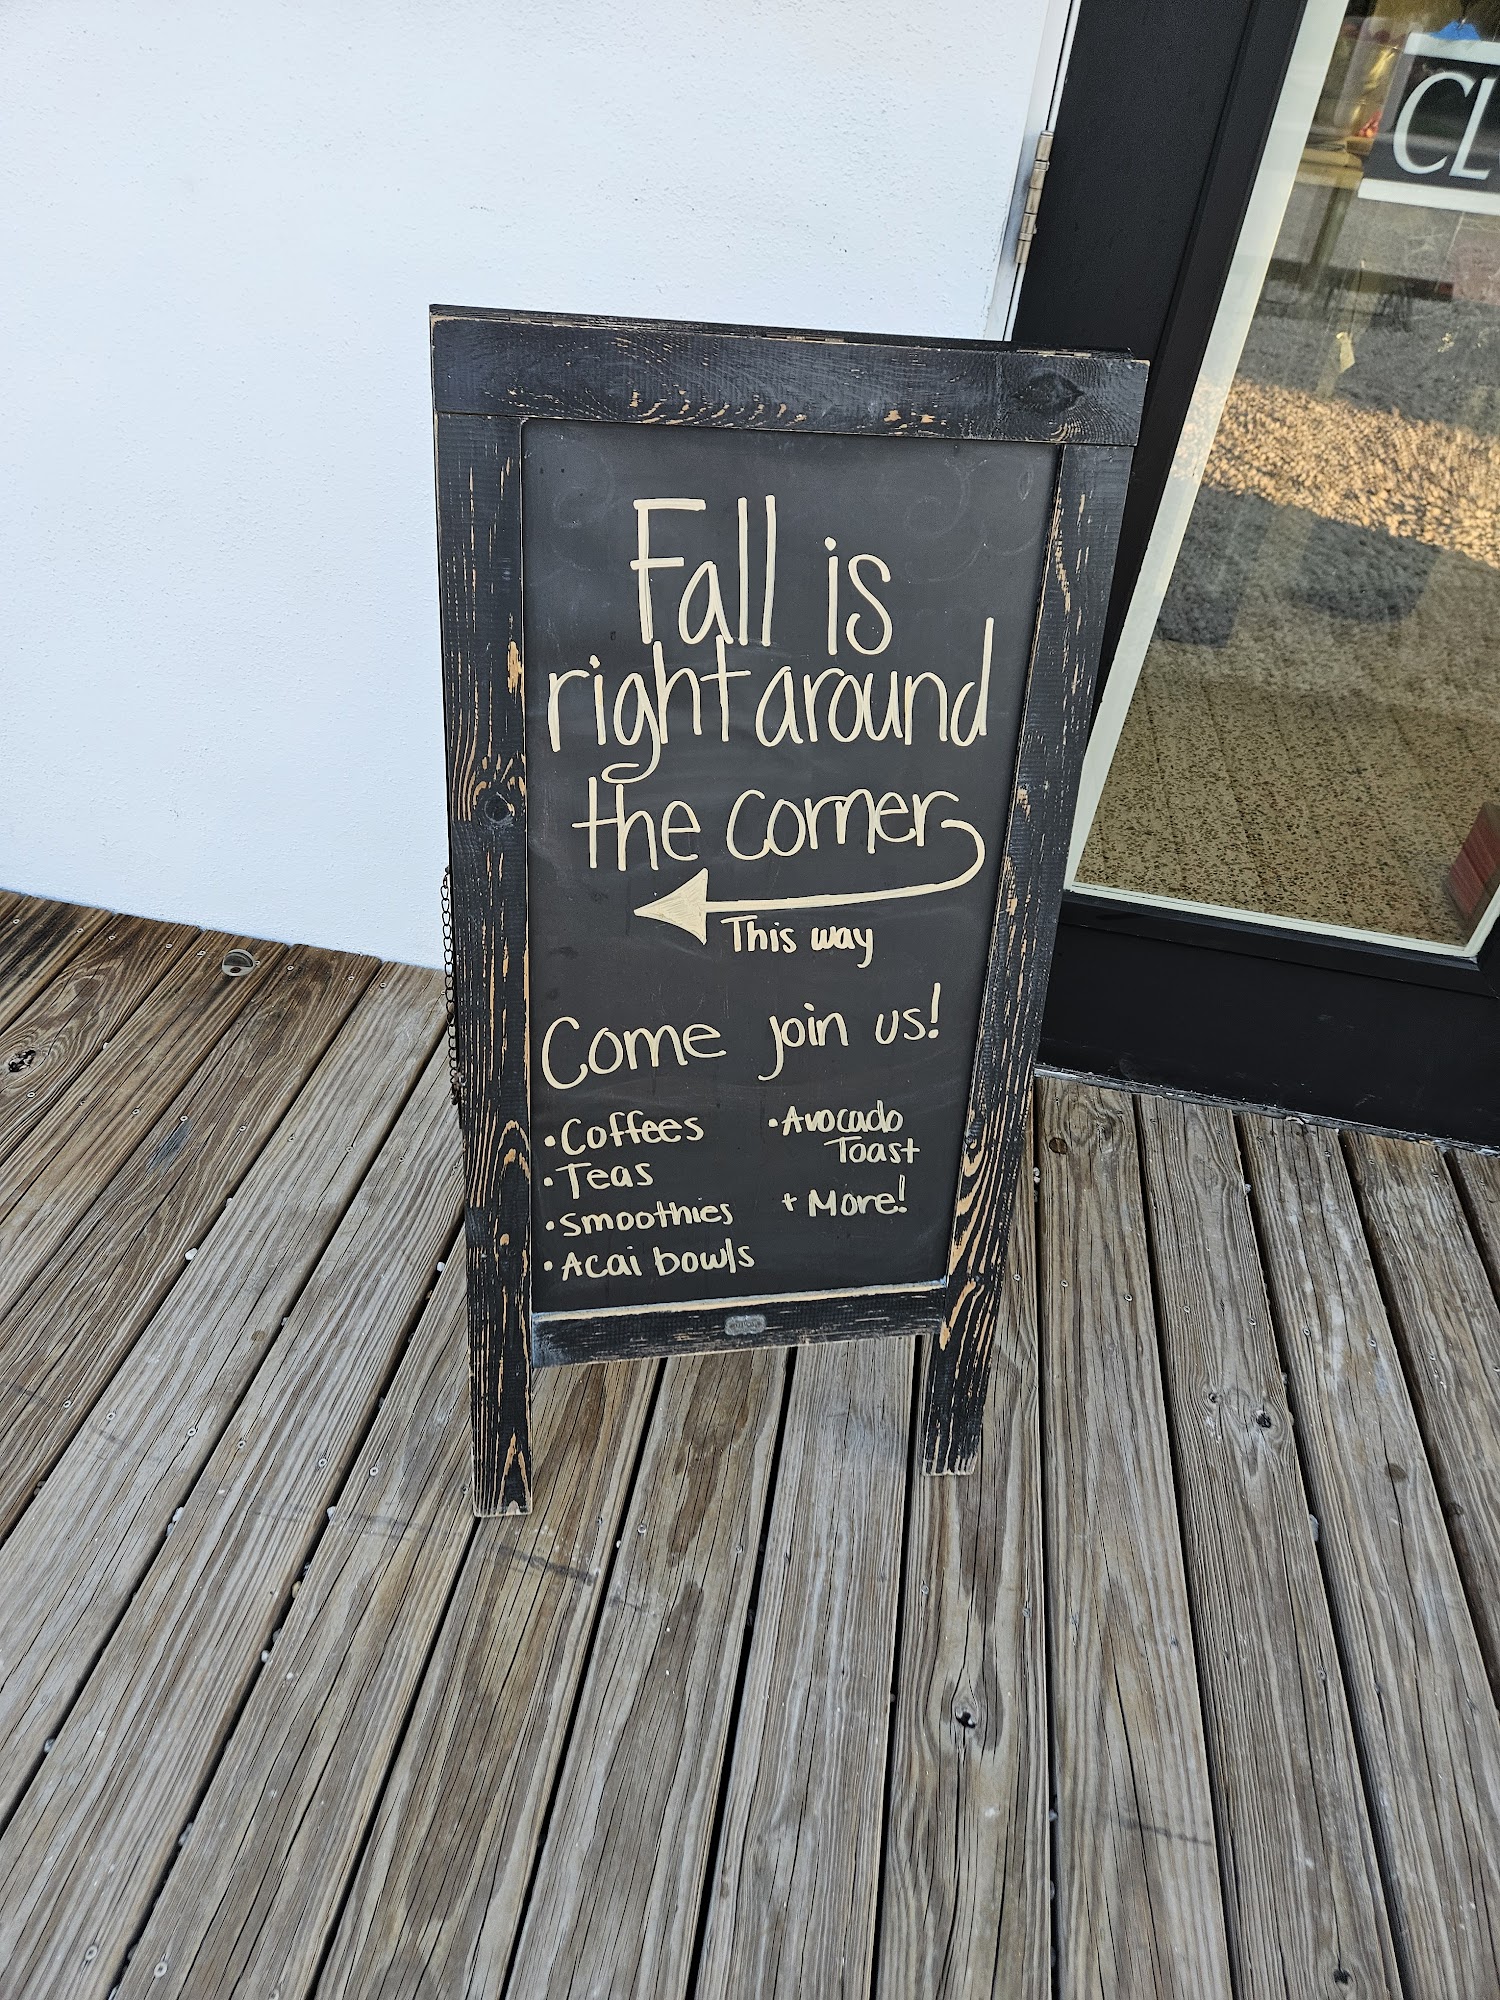 Fall is
right around
the corner
This way
Come join us!
• Coffees
• Teas
• Smoothies
• Acai bowls
• Avocado
Toast
+ More!
CL